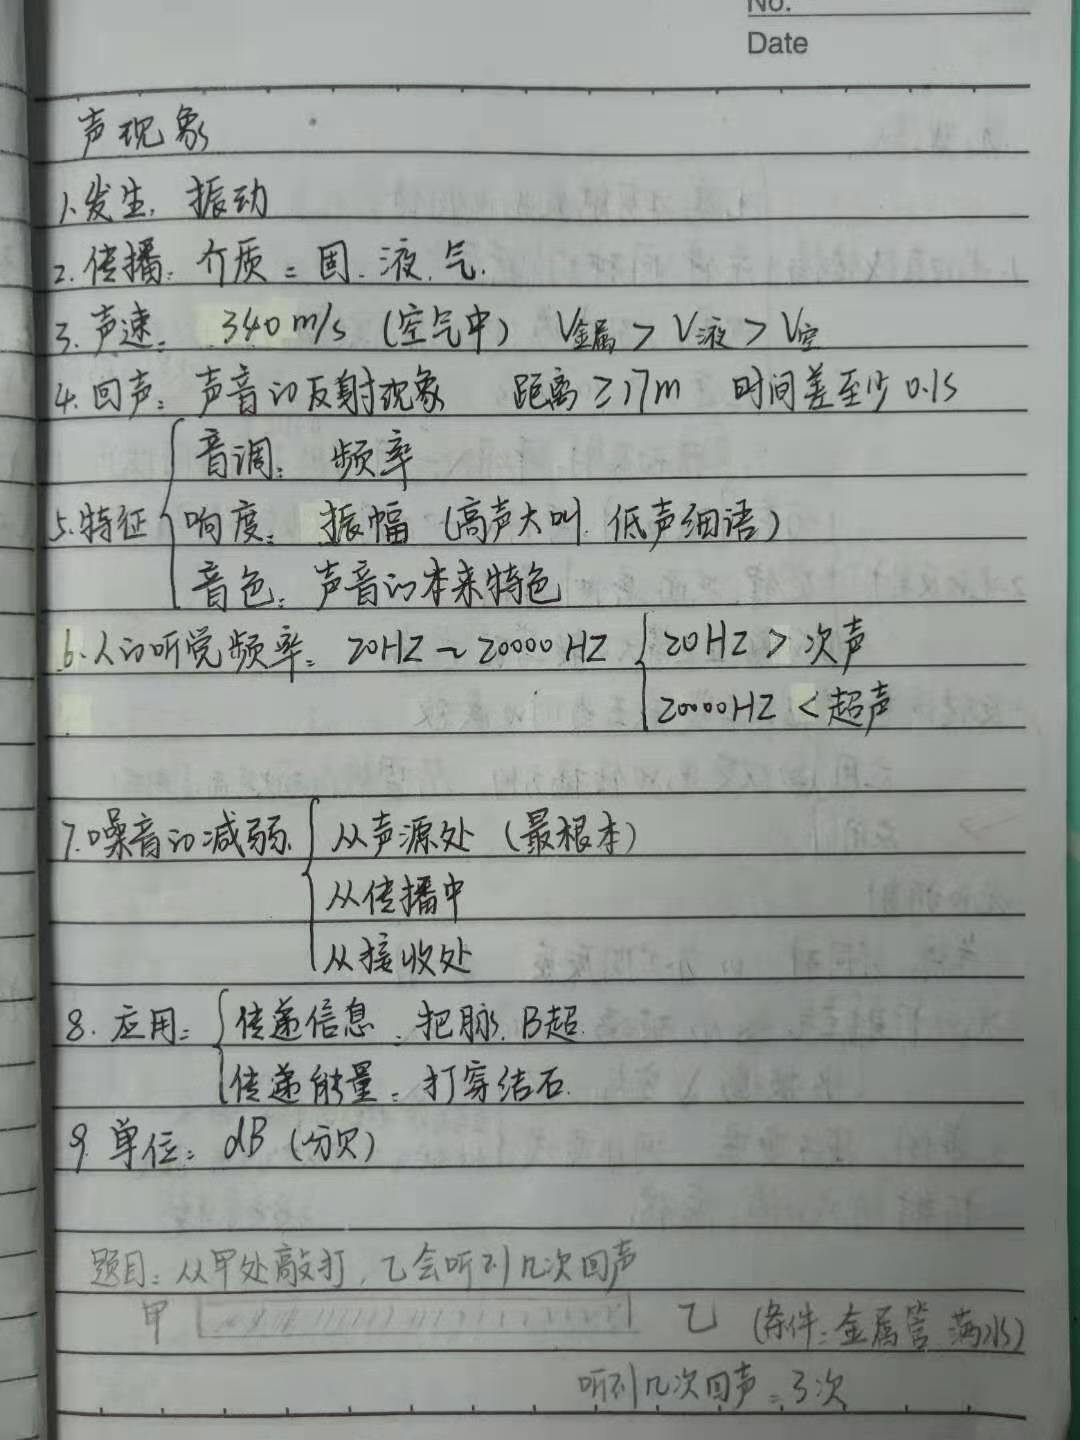 No.
Date
声现象
1.发生: 振动
2.传播: 介质: 固.液.气.
3.声速: 340m/s (空气中) V金属 > V液 > V空
4.回声: 声音的反射现象 距离≥17m 时间差至少0.1s
音调: 频率
5.特征 响度: 振幅 (高声大叫.低声细语)
音色: 声音的本来特色
6.人的听觉频率: 20HZ ~ 20000HZ 20HZ > 次声
20000HZ < 超声
7.噪音的减弱 从声源处 (最根本)
从传播中
从接收处
8.应用: 传递信息: 把脉.B超.
传递能量: 打穿结石.
9.单位: dB (分贝)
题目: 从甲处敲打,乙会听到几次回声
甲 乙 (条件:金属管 满水)
听到几次回声: 3次